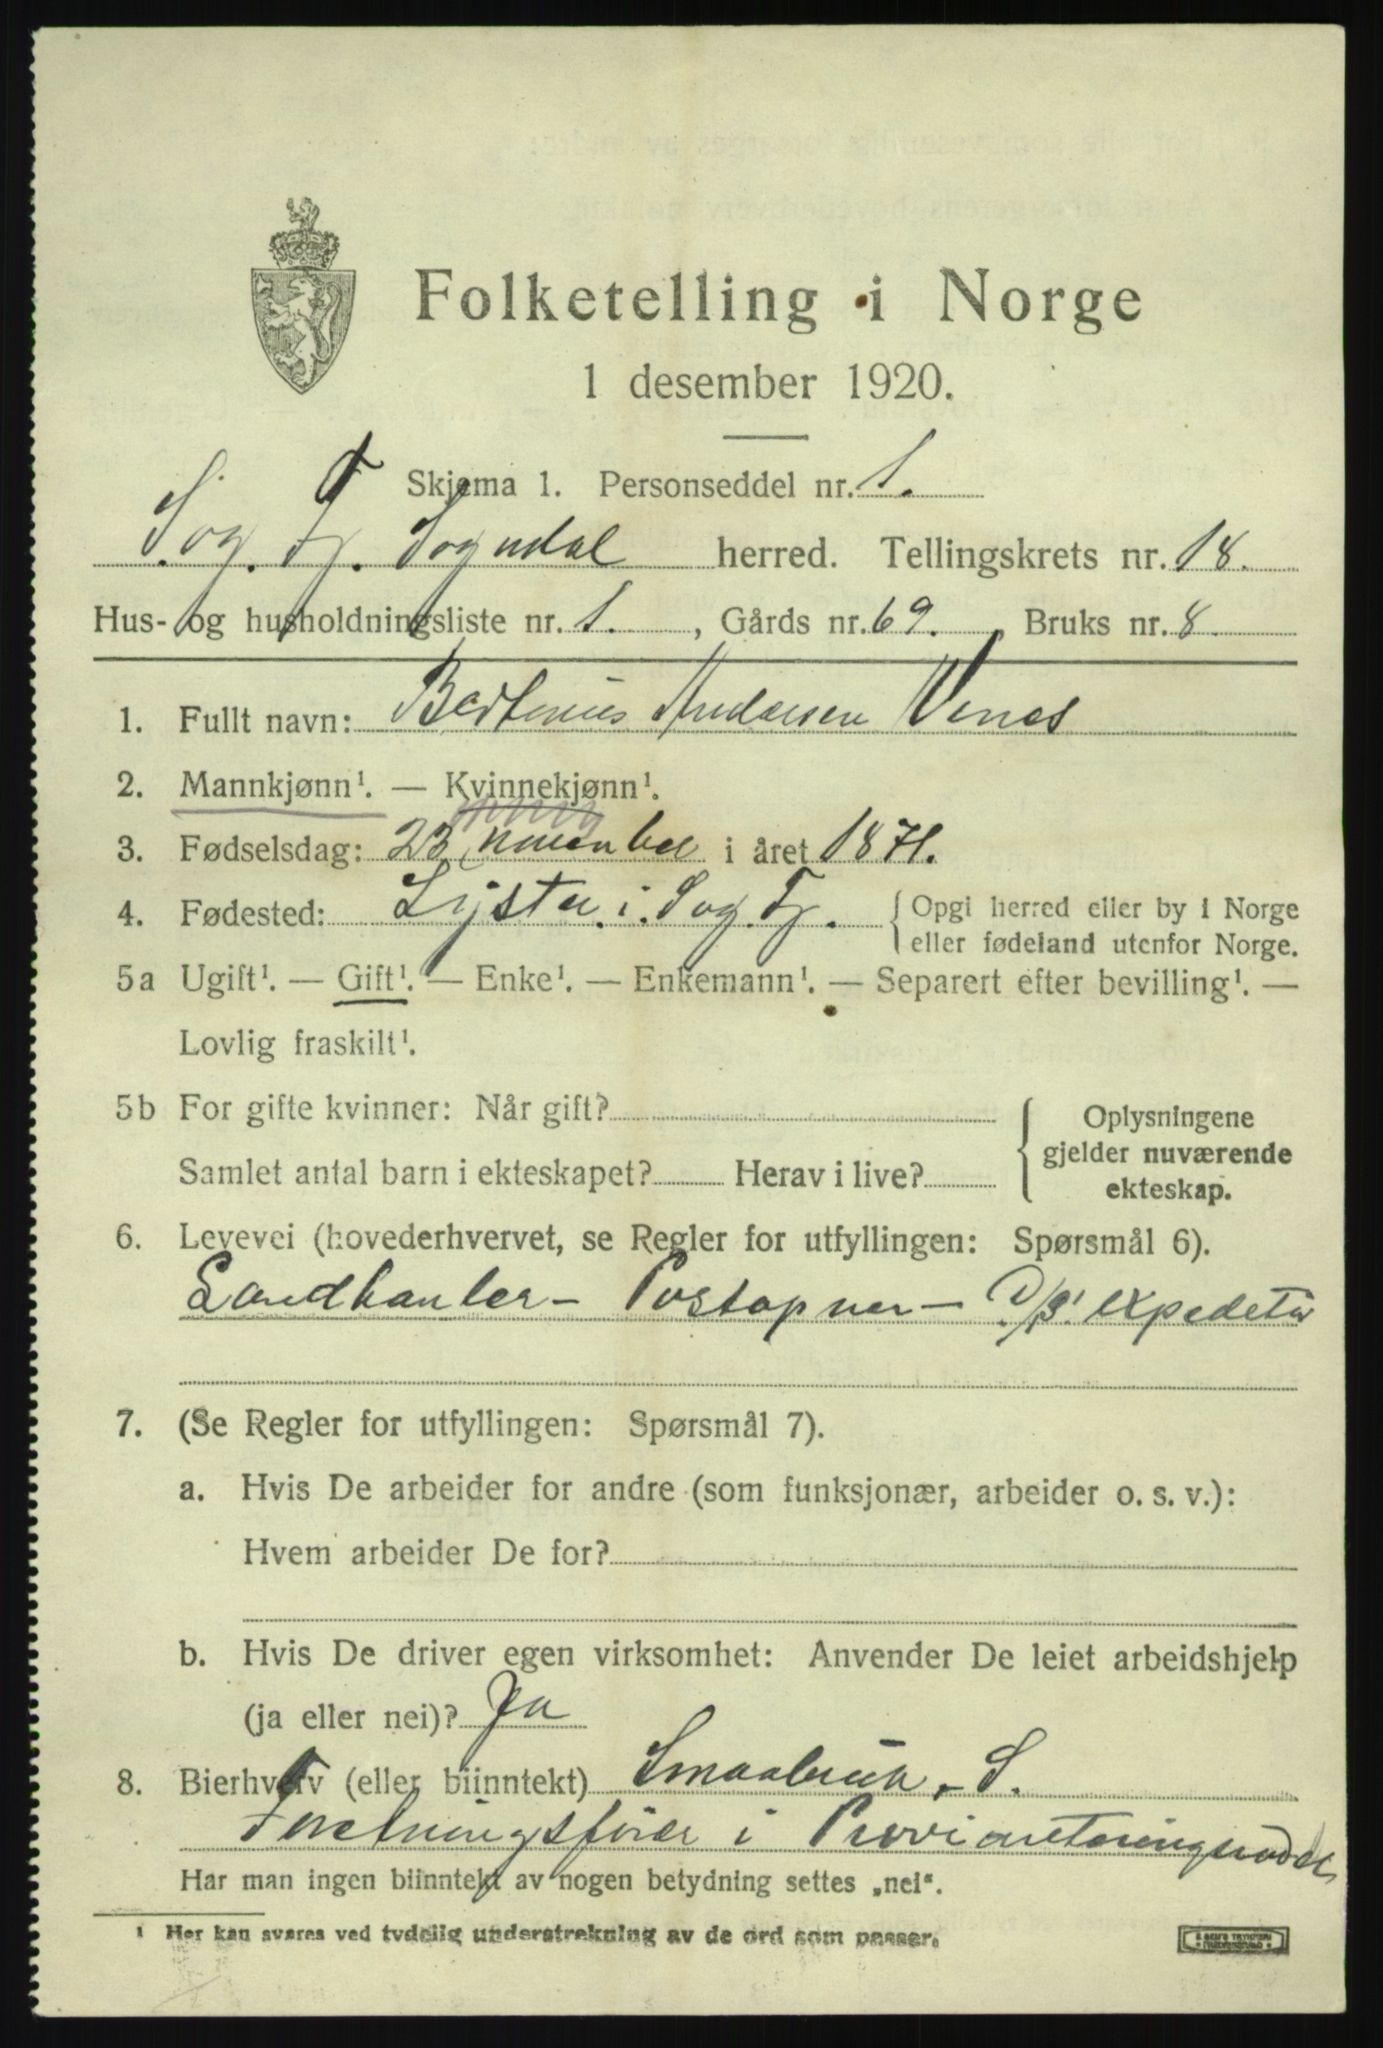 Folketelling i Norge
1 desember 1920.
Skjema 1. Personseddel nr. 1.
Sog. Fj. Sogndal herred. Tellingskrets nr. 18.
Hus- og husholdningsliste nr. 1. , Gårds nr. 69. , Bruks nr. 8
1. Fullt navn: Bertinius Andersen Venes
2. Mannkjønn¹. — Kvinnekjønn¹.
3. Fødselsdag: 23 november i året 1871.
4. Fødested: Lyster i Sog. Fj. { Opgi herred eller by i Norge
eller fødeland utenfor Norge.
5a Ugift¹. — Gift¹. — Enke¹. — Enkemann¹. — Separert efter bevilling¹. —
Lovlig fraskilt¹.
5b For gifte kvinner: Når gift? { Oplysningene
gjelder nuværende
Samlet antal barn i ekteskapet? Herav i live? ekteskap.
6. Levevei (hovederhvervet, se Regler for utfyllingen: Spørsmål 6).
Landhanler - Postopner - D/S! expeditør
7. (Se Regler for utfyllingen: Spørsmål 7).
a. Hvis De arbeider for andre (som funksjonær, arbeider o. s. v.):
Hvem arbeider De for?
b. Hvis De driver egen virksomhet: Anvender De leiet arbeidshjelp
(ja eller nei)? Ja
8. Bierhverv (eller biinntekt) Smaabruk, - S.
Foretningsfører i Provianteringsraadet
Har man ingen biinntekt av nogen betydning settes „nei“.
¹ Her kan svares ved tydelig understrekning av de ord som passer.